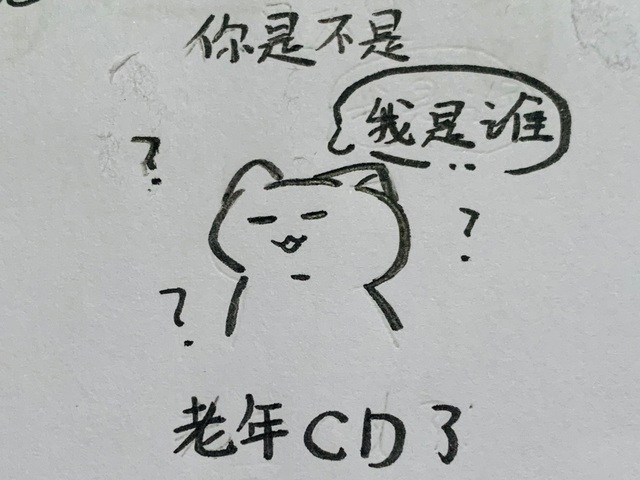 你是不是
我是谁
?
?
?
老年CD了